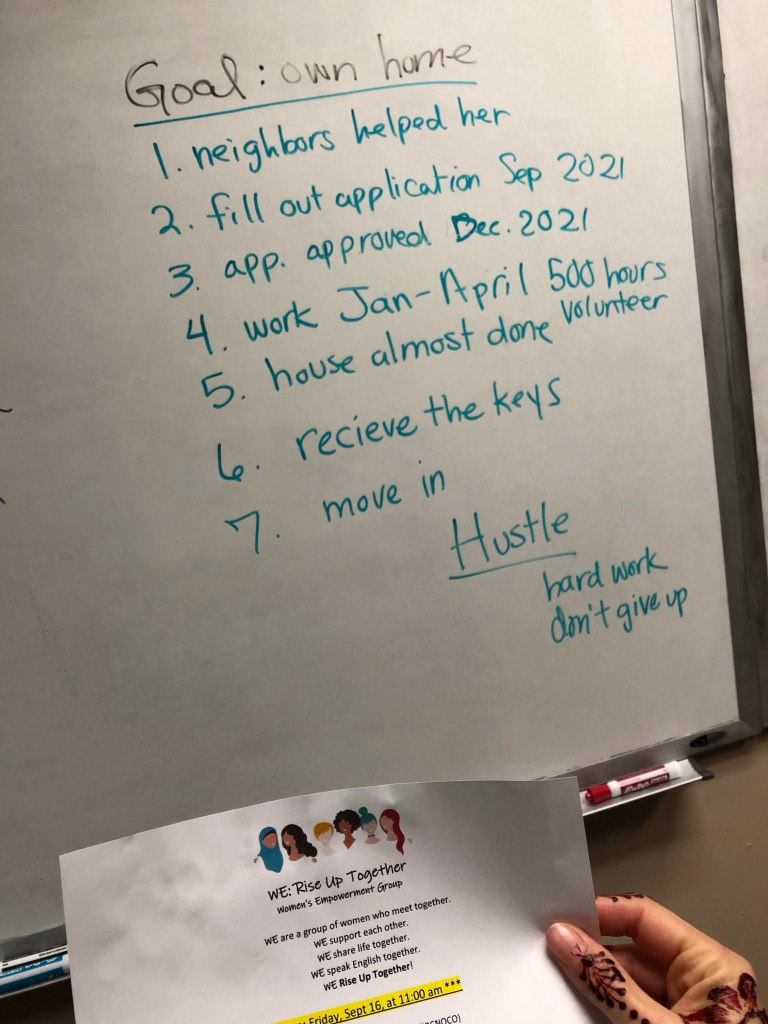 Goal: own home
1. neighbors helped her
2. fill out application Sep 2021
3. app. approved Dec. 2021
4. work Jan-April 500 hours
volunteer
5. house almost done
6. recieve the keys
7. move in
Hustle
hard work
don't give up
WE: Rise Up Together
Women's Empowerment Group
WE are a group of women who meet together.
WE support each other.
WE share life together.
WE speak English together.
WE Rise Up Together!
Friday, Sept 16, at 11:00 am ***